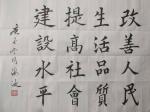 改善人民
生活品質
提高社會
建設水平